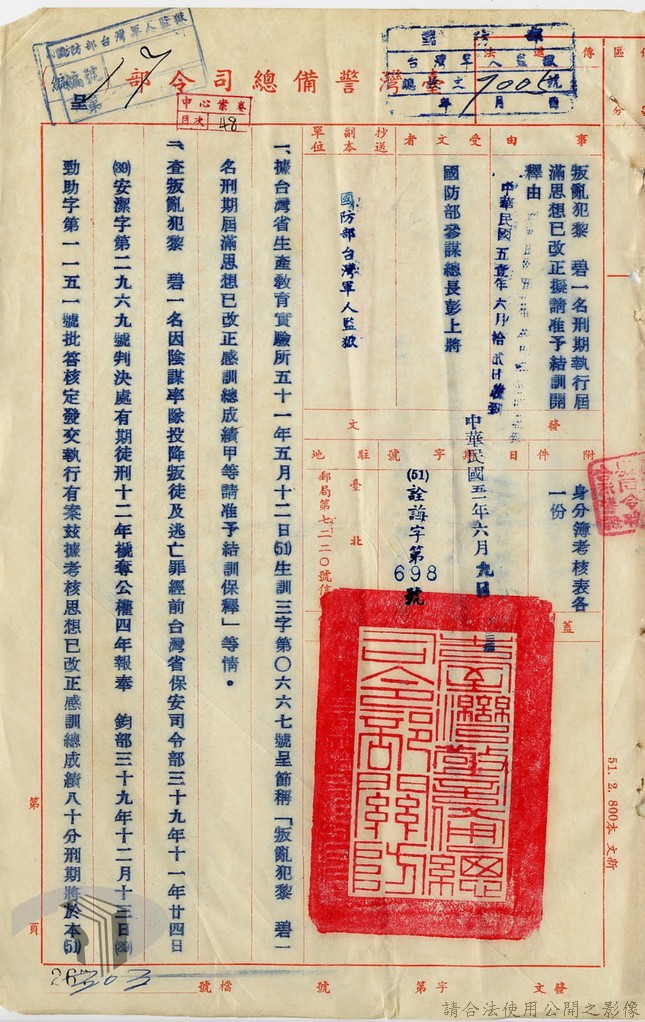 國防部台灣軍人監獄
編號
第
17
呈
台灣警備總司令部
中心案卷
目次
48
台灣軍人監獄
總收文
號
年 月 日
傳
區分
事由
叛亂犯黎 碧一名刑期執行屆
滿思想已改正擬請准予結訓開
釋由
中華民國五壹年六月拾貳日收到
受文者
國防部參謀總長彭上將
抄送副本單位
國防部台灣軍人監獄
附件
身分簿考核表各
一份
發文
日期
中華民國五一年六月九日
字號
(51)
詮誨字第
698
號
駐地
臺北
郵局第七二二〇號信
蓋
臺灣警備總
司令部關防
一、據台灣省生產教育實驗所五十一年五月十二日(51)生訓三字第〇六六七號呈節稱「叛亂犯黎 碧一
名刑期屆滿思想已改正感訓總成績甲等請准予結訓保釋」等情。
二、查叛亂犯黎 碧一名因陰謀率隊投降叛徒及逃亡罪經前台灣省保安司令部三十九年十一年廿四日
(39)安潔字第二九六九號判決處有期徒刑十二年褫奪公權四年報奉 鈞部三十九年十二月十三日(39)
勁助字第一一五一號批答核定發交執行有案茲據考核思想已改正感訓總成績八十分刑期將於本(51)
第 頁
51. 2. 800本 文新
發文 字第 號 檔號
303
請合法使用公開之影像